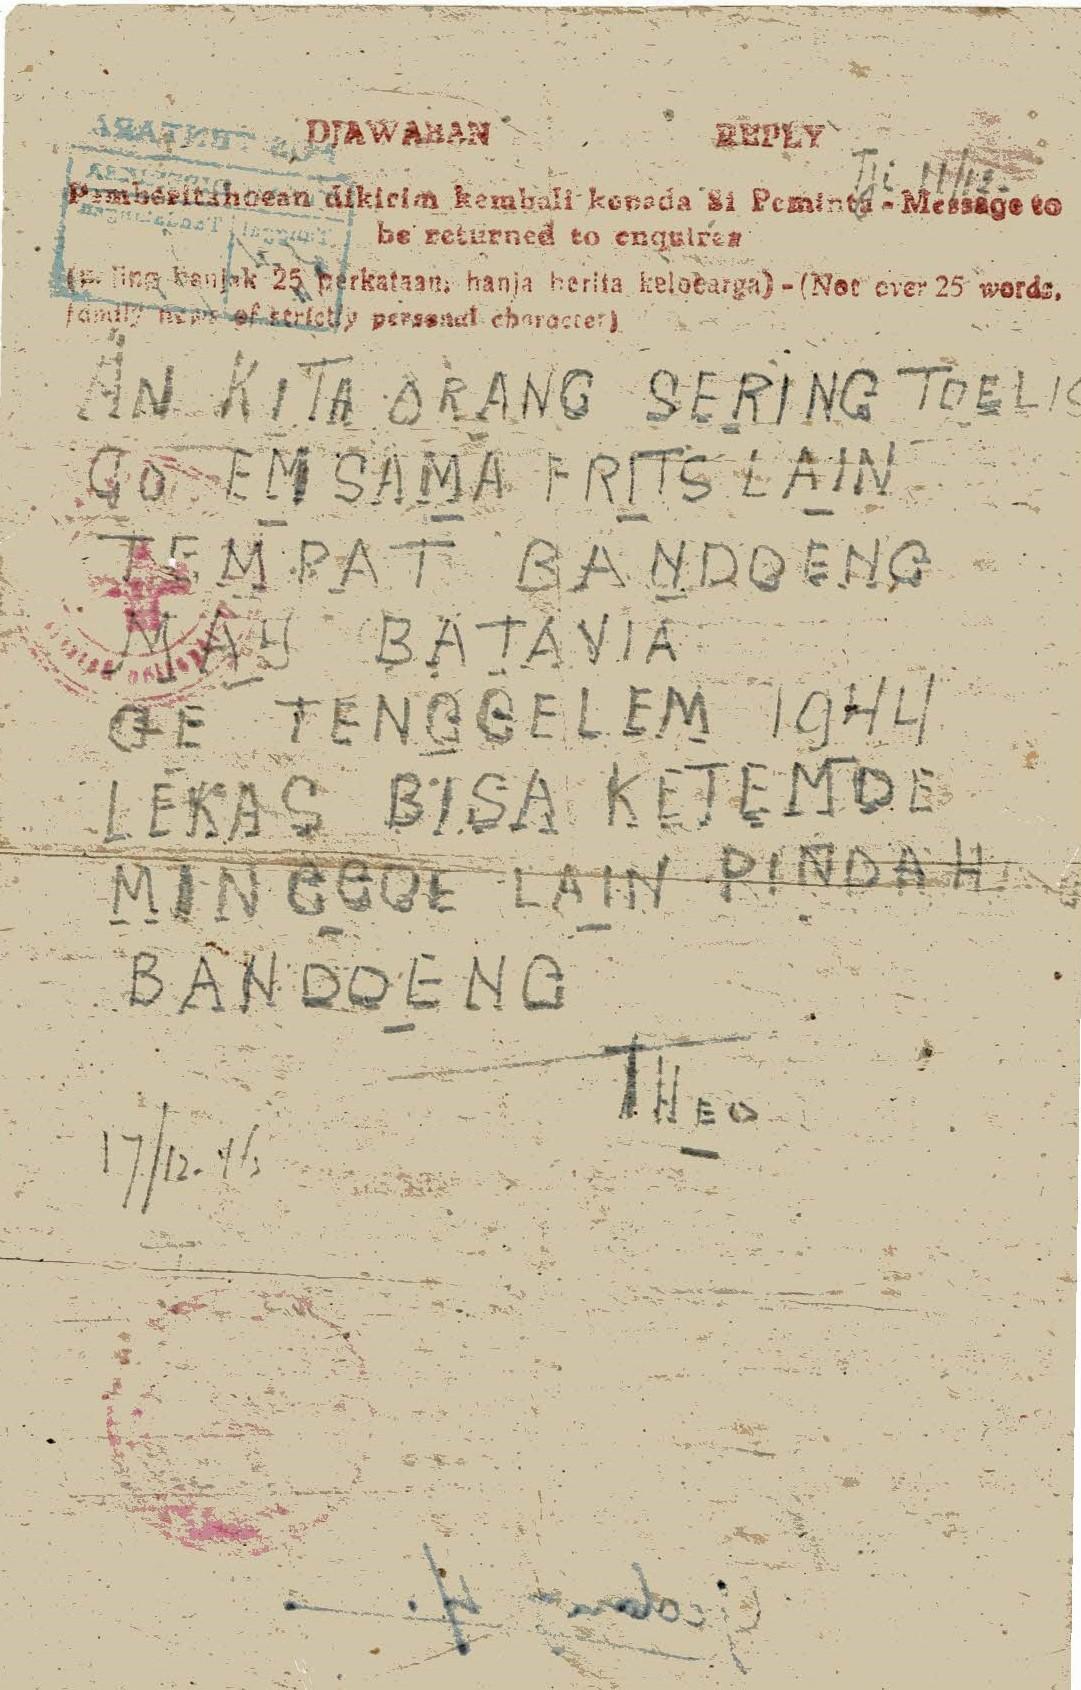 DJAWABAN REPLY
Tgi 11/12.
Pemberitahoean dikirim kembali kepada Si Peminta - Message to
be returned to enquirer
(paling banjak 25 perkataan, hanja berita keloearga) - (Not over 25 words,
family news of strictly personal character)
AN KITA ORANG SERING TOELIS
GO EM SAMA FRITS LAIN
TEMPAT BANDOENG
MAY BATAVIA
GE TENGGELEM 1944
LEKAS BISA KETEMOE
MINGGOE LAIN PINDAH
BANDOENG
THEO
17/12. 45